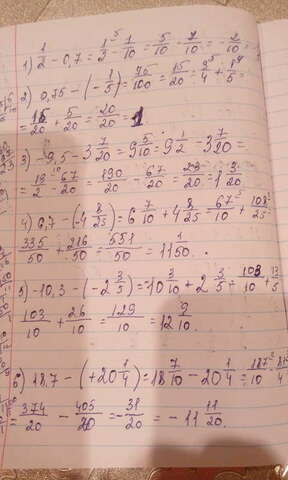 1) 1/2 - 0,7 = 1/2 - 7/10 = 5/10 - 7/10 = - 2/10 =
2) 0,75 - (- 1/5) = 75/100 = 15/20 = 3/4 + 1/5 =
= 15/20 + 5/20 = 20/20 = 1
3) -9,5 - 3 7/20 = 9 5/10 = 9 1/2 - 3 7/20 =
= 19/2 - 67/20 = 190/20 - 67/20 = 23/20 = 1 3/20
4) 6,7 - (-4 8/25) = 6 7/10 + 4 8/25 = 67/10 + 108/25
335/50 + 216/50 = 551/50 = 11 1/50.
5) -10,3 - (-2 3/5) = -10 3/10 + 2 3/5 = 103/10 + 13/5
103/10 + 26/10 = 129/10 = 12 9/10.
6) 18,7 - (+20 1/4) = 18 7/10 - 20 1/4 = 187/10 - 81/4
= 374/20 - 405/20 = - 31/20 = - 11 11/20.